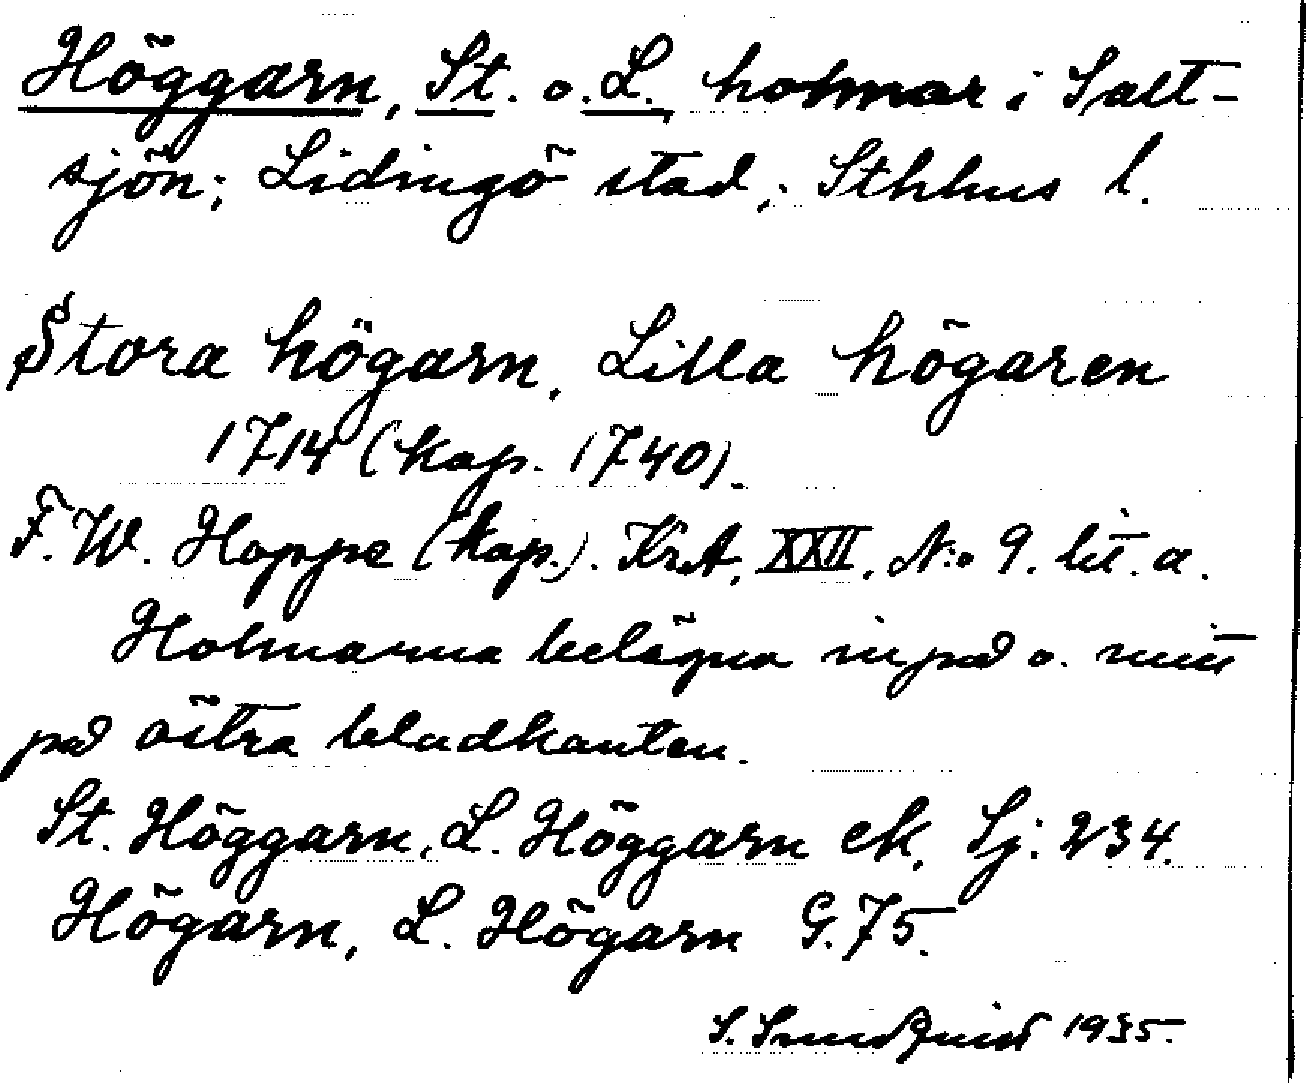 Höggarn, St. o. L. holmar i Salt-
sjön; Lidingö stad; Sthlms l.
Stora högarn, Lilla högaren
1714 (kop. 1740).
F. W. Hoppe (kop.). Kr.A. XXII. N:o 9. lit. a.
Holmarna belägna inpå o. mitt
på östra bladkanten.
St. Höggarn, L. Höggarn ek. Sj: 234.
Högarn, L. Högarn G. 75.
S. 1935.